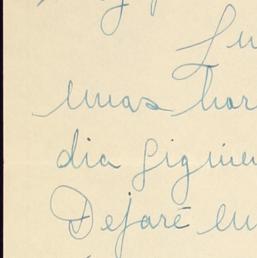 Lu
unas hor
dia siguien
Dejaré en